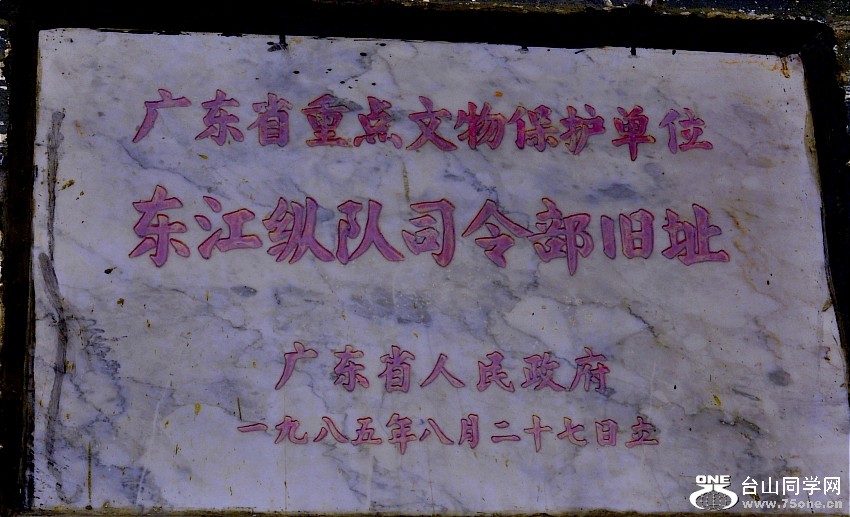 广东省重点文物保护单位
东江纵队司令部旧址
广东省人民政府
一九八五年八月二十七日立
ONE 台山同学网
www.75one.cn